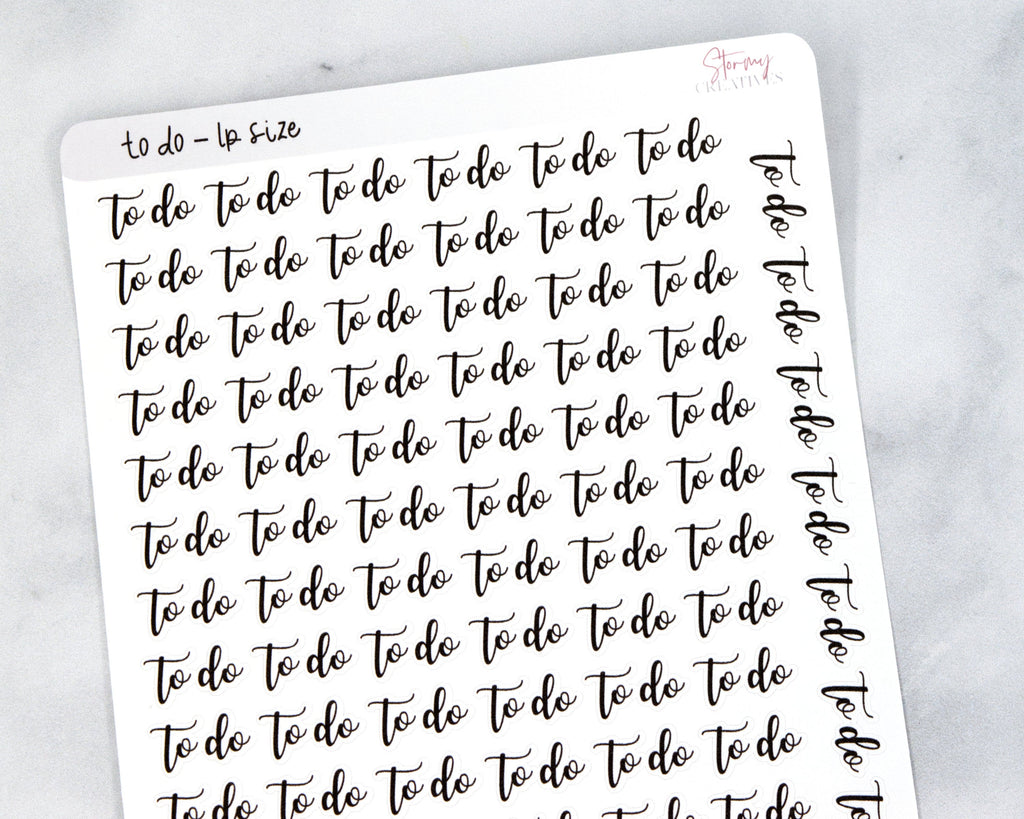 to do - lp size
Stormy
CREATIVES
to do to do to do to do to do to do
to do to do to do to do to do to do
to do to do to do to do to do to do
to do to do to do to do to do to do
to do to do to do to do to do to do
to do to do to do to do to do to do
to do to do to do to do to do to do
to do to do to do to do to do to do
to do to do to do to do to do to do
to do to do to do to do to do to do
to do
to do to do to do to do to do to do to